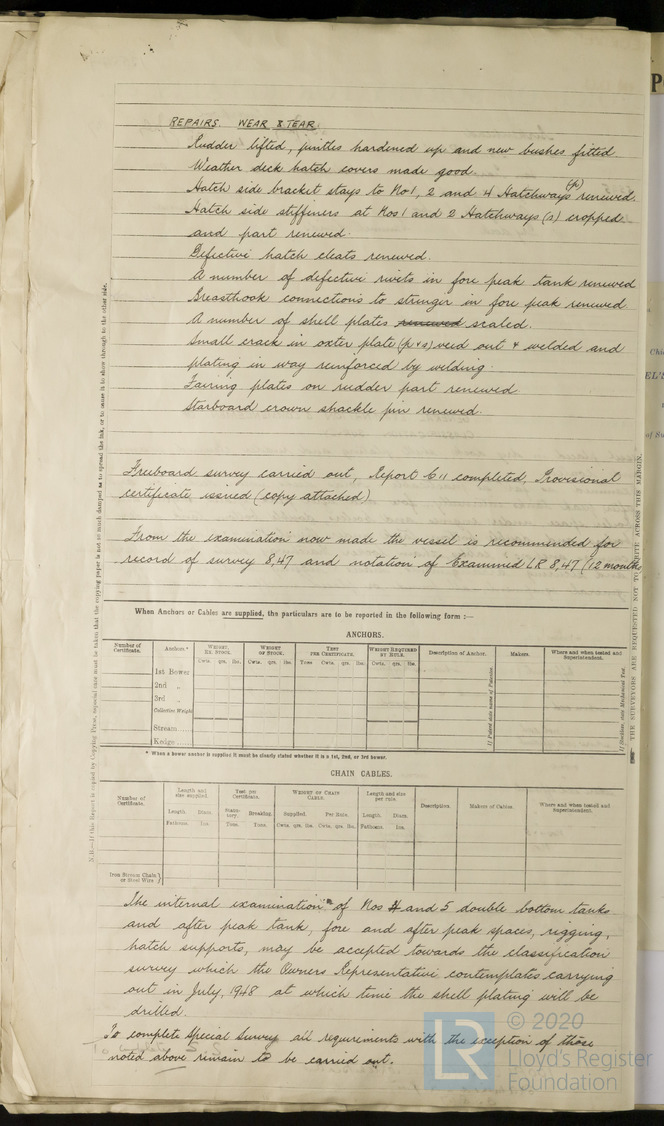 REPAIRS. WEAR & TEAR.
Rudder lifted, pintles hardened up and new bushes fitted.
Weather deck hatch covers made good.
Hatch side bracket stays to No 1, 2 and 4 Hatchways (p) renewed.
Hatch side stiffeners at Nos 1 and 2 Hatchways (s) cropped
and part renewed.
Defective hatch cleats renewed.
A number of defective rivets in fore peak tank renewed
Breasthook connections to stringer in fore peak renewed
A number of shell plates renewed scaled.
Small crack in oxter plate (p & s) veed out & welded and
plating in way reinforced by welding.
Fairing plates on rudder part renewed.
Starboard crown shackle pin renewed.
Freeboard survey carried out, Report C11 completed, Provisional
certificate issued (copy attached)
From the examination now made the vessel is recommended for
record of survey 8,47 and notation of Examined LR 8,47 (12 months
When Anchors or Cables are supplied, the particulars are to be reported in the following form :—
ANCHORS.
Number of Certificate. Anchors.* WEIGHT EX. STOCK. WEIGHT OF STOCK. TEST PER CERTIFICATE. WEIGHT REQUIRED BY RULE. Description of Anchor. Makers. Where and when tested and Superintendent.
Cwts. qrs. lbs. Cwts. qrs. lbs. Tons Cwts. qrs. lbs. Cwts. qrs. lbs.
1st Bower
2nd „
3rd „
Collective Weight
Stream
Kedge
* When a bower anchor is supplied it must be clearly stated whether it is a 1st, 2nd, or 3rd bower.
CHAIN CABLES.
Number of Certificate. Length and size supplied. Test per Certificate. WEIGHT OF CHAIN CABLE. Length and size per rule. Description. Makers of Cables. Where and when tested and Superintendent.
Length. Diam. Statutory. Breaking. Supplied. Per Rule. Length. Diam.
Fathoms. Ins. Tons. Tons. Cwts. qrs. lbs. Cwts. qrs. lbs. Fathoms. Ins.
Iron Stream Chain
or Steel Wire
The internal examination of Nos 4 and 5 double bottom tanks
and after peak tank, fore and after peak spaces, rigging,
hatch supports, may be accepted towards the classification
survey which the Owners Representative contemplates carrying
out in July, 1948 at which time the shell plating will be
drilled.
To complete Special Survey all requirements with the exception of those
noted above remain to be carried out.
N.B.—If this Report is copied by Copying Press, especial care must be taken that the copying paper is not so much damped as to spread the ink, or to cause it to show through to the other side.
THE SURVEYORS ARE REQUESTED NOT TO WRITE ACROSS THIS MARGIN.
LR
© 2020
Lloyd's Register
Foundation